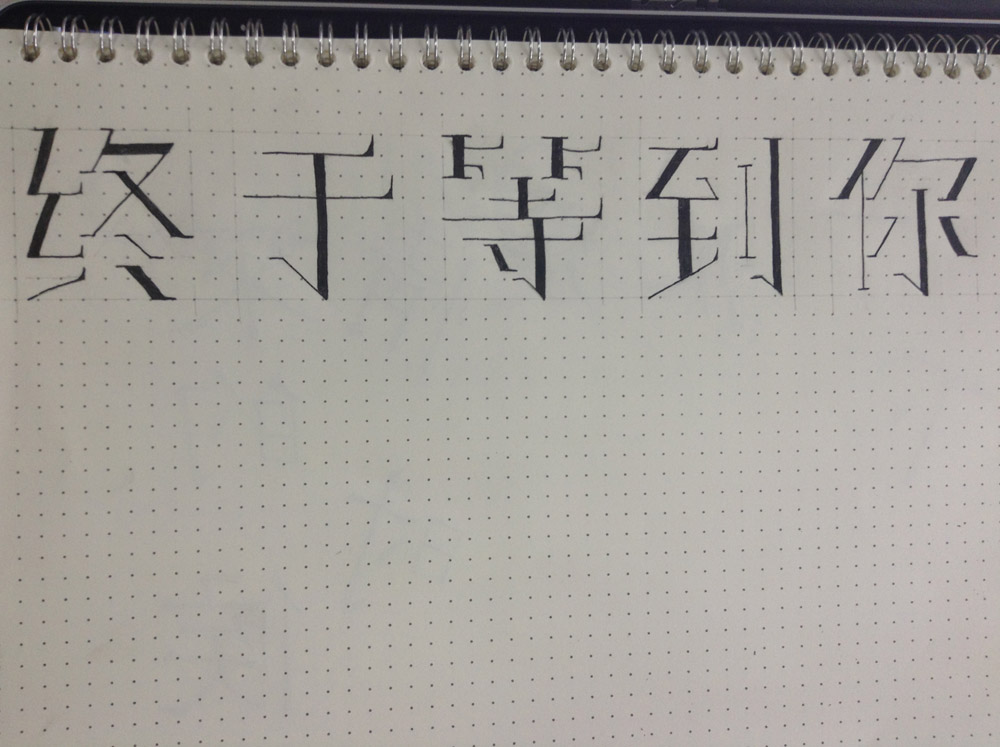 终于等到你